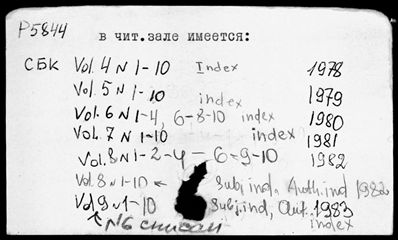 P5844
в чит.зале имеется:
СБК Vol. 4 N 1-10 Index 1978
Vol. 5 N 1-10 index 1979
Vol. 6 N 1-4, 6-8-10 index 1980
Vol. 7 N 1-10 index 1981
Vol. 8 N 1-2-4-6-9-10 1982
Vol 8 N 1-10 Subj ind. Auth. ind 1982
Vol 9 N 1-10 Subj. ind, Aut. 1983
N6 списан index